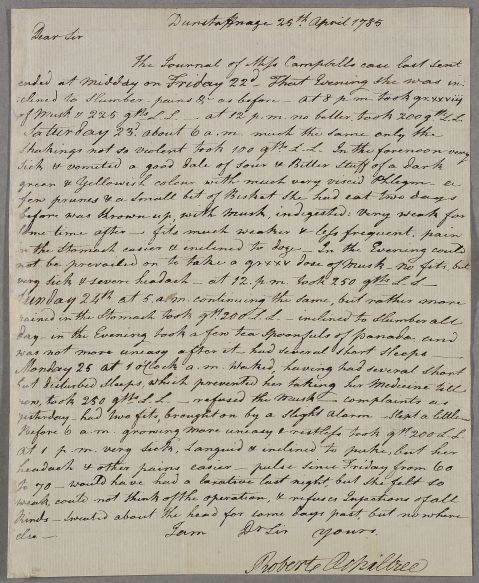 Dunstaffnage 25th April 1785
Dear Sir
The Journal of Miss Campbells case last sent
ended at midday on Friday 22d. That Evening she was in-
clined to Slumber pains &c as before — at 8 p.m. took gr.xxviij
of Musk & 225 gtts L.L. — at 12 p.m. no better, took 200 gtts L.L.
Saturday 23d. about 6 a.m. much the same only the
Shakings not so violent took 100 gtts L.L. In the forenoon very
Sick & vomited a good dale of Sour & Bitter Stuff of a dark
green & Yellowish colour with much very viscid Phlegm a
few prunes & a small bit of Bisket she had eat two days
before was thrown up, with Musk, indigested. Very weak for
some time after — fits much weaker & less frequent, pain
in the Stomach easier & inclined to doze — In the Evening could
not be prevailed on to take a gr xxx dose of Musk — no fits, but
very Sick & severe headach — at 12 p.m. took 250 gtts L.L —
Sunday 24th at 5 a.m. continuing the same, but rather more
pained in the Stomach took gtts 200 L.L — inclined to Slumber all
day — in the Evening took a few tea Spoonfuls of panada and
was not more uneasy after it — had several short Sleeps —
Monday 25 at 1 oClock a.m. waked, having had several Short
but disturbed Sleeps, which prevented her taking her Medicine till
now, took 250 gtts L.L — refused the Musk — complaints as
yesterday — had two fits, brought on by a slight alarm — Slept a little —
Before 6 a.m. growing more uneasy & restless took gtts 200 L.L
at 1 p.m. very Sick, Languid & inclined to puke, but her
headach & other pains easier — pulse since Friday from 60
to 70 — would have had a laxative last night, but she felt so
weak, could not think of the operation, & refuses Injections of all
kinds — Sweated about the head for some days past, but no where
else —
I am Dr Sir yours
Robert Ochiltree